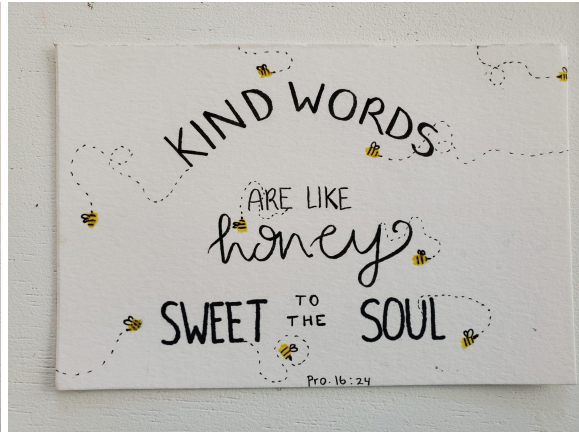 KIND WORDS
ARE LIKE
honey
SWEET TO THE SOUL
Pro. 16:24